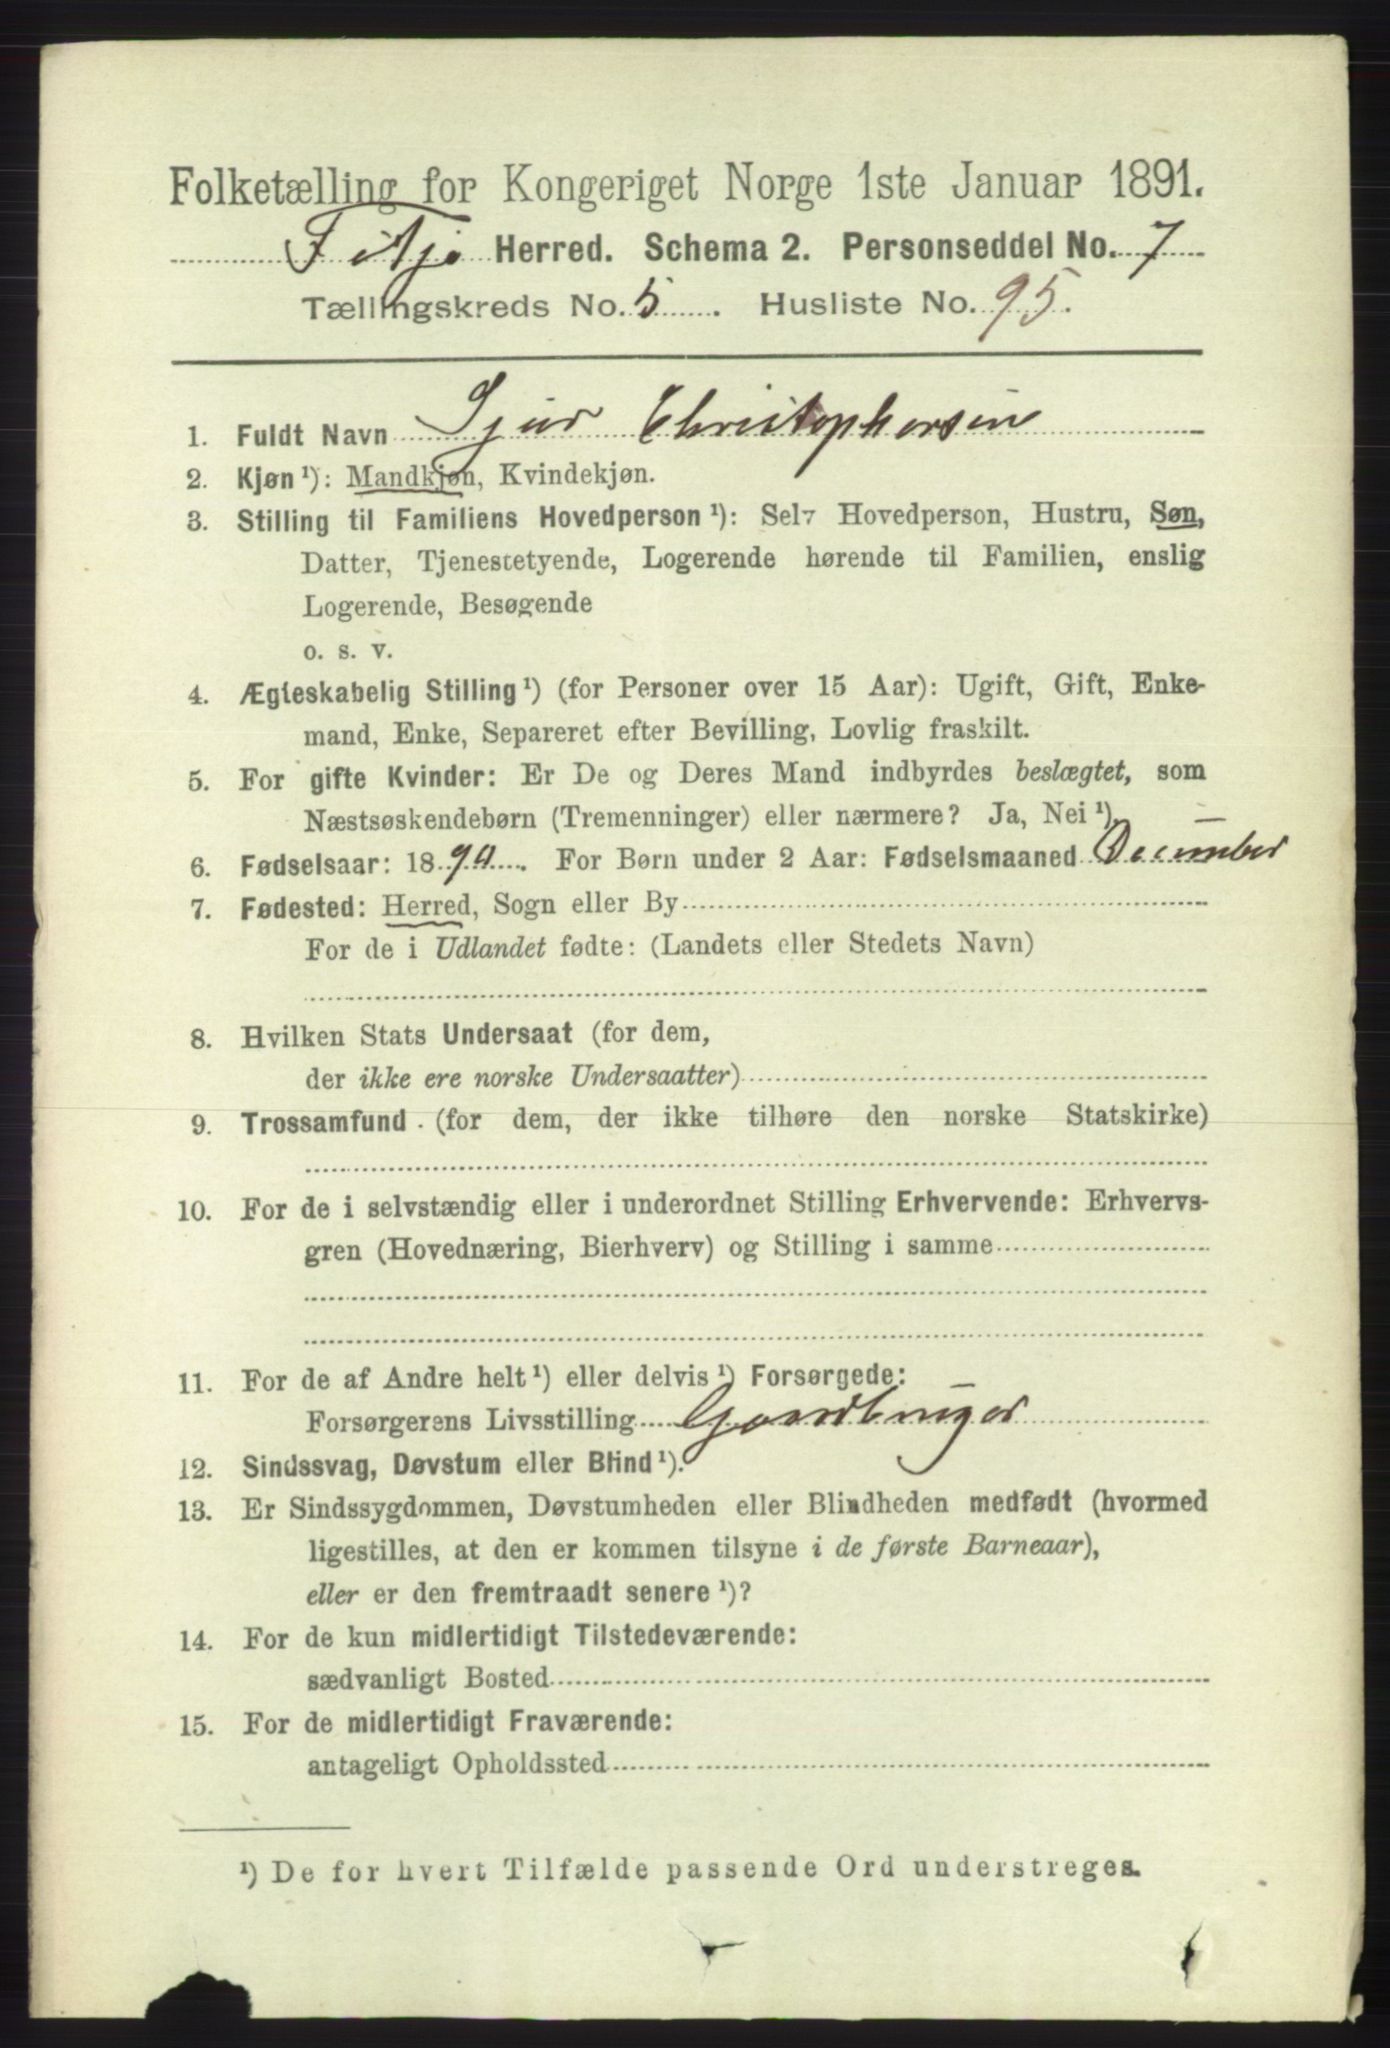 Folketælling for Kongeriget Norge 1ste Januar 1891.
Fitje Herred. Schema 2. Personseddel No. 7
Tællingskreds No. 5. Husliste No. 95.
1. Fuldt Navn Sjur Christophersen
2. Kjøn ¹): Mandkjøn, Kvindekjøn.
3. Stilling til Familiens Hovedperson ¹): Selv Hovedperson, Hustru, Søn,
Datter, Tjenestetyende, Logerende hørende til Familien, enslig
Logerende, Besøgende
o. s. v.
4. Ægteskabelig Stilling ¹) (for Personer over 15 Aar): Ugift, Gift, Enke-
mand, Enke, Separeret efter Bevilling, Lovlig fraskilt.
5. For gifte Kvinder: Er De og Deres Mand indbyrdes beslægtet, som
Næstsøskendebørn (Tremenninger) eller nærmere? Ja, Nei ¹).
6. Fødselsaar: 1890. For Børn under 2 Aar: Fødselsmaaned December
7. Fødested: Herred, Sogn eller By
For de i Udlandet fødte: (Landets eller Stedets Navn)
8. Hvilken Stats Undersaat (for dem,
der ikke ere norske Undersaatter)
9. Trossamfund. (for dem, der ikke tilhøre den norske Statskirke)
10. For de i selvstændig eller i underordnet Stilling Erhvervende: Erhvervs-
gren (Hovednæring, Bierhverv) og Stilling i samme
11. For de af Andre helt ¹) eller delvis ¹) Forsørgede:
Forsørgerens Livsstilling Gaardbruger
12. Sindssvag, Døvstum eller Blind ¹).
13. Er Sindssygdommen, Døvstumheden eller Blindheden medfødt (hvormed
ligestilles, at den er kommen tilsyne i de første Barneaar),
eller er den fremtraadt senere ¹)?
14. For de kun midlertidigt Tilstedeværende:
sædvanligt Bosted
15. For de midlertidigt Fraværende:
antageligt Opholdssted
¹) De for hvert Tilfælde passende Ord understreges.